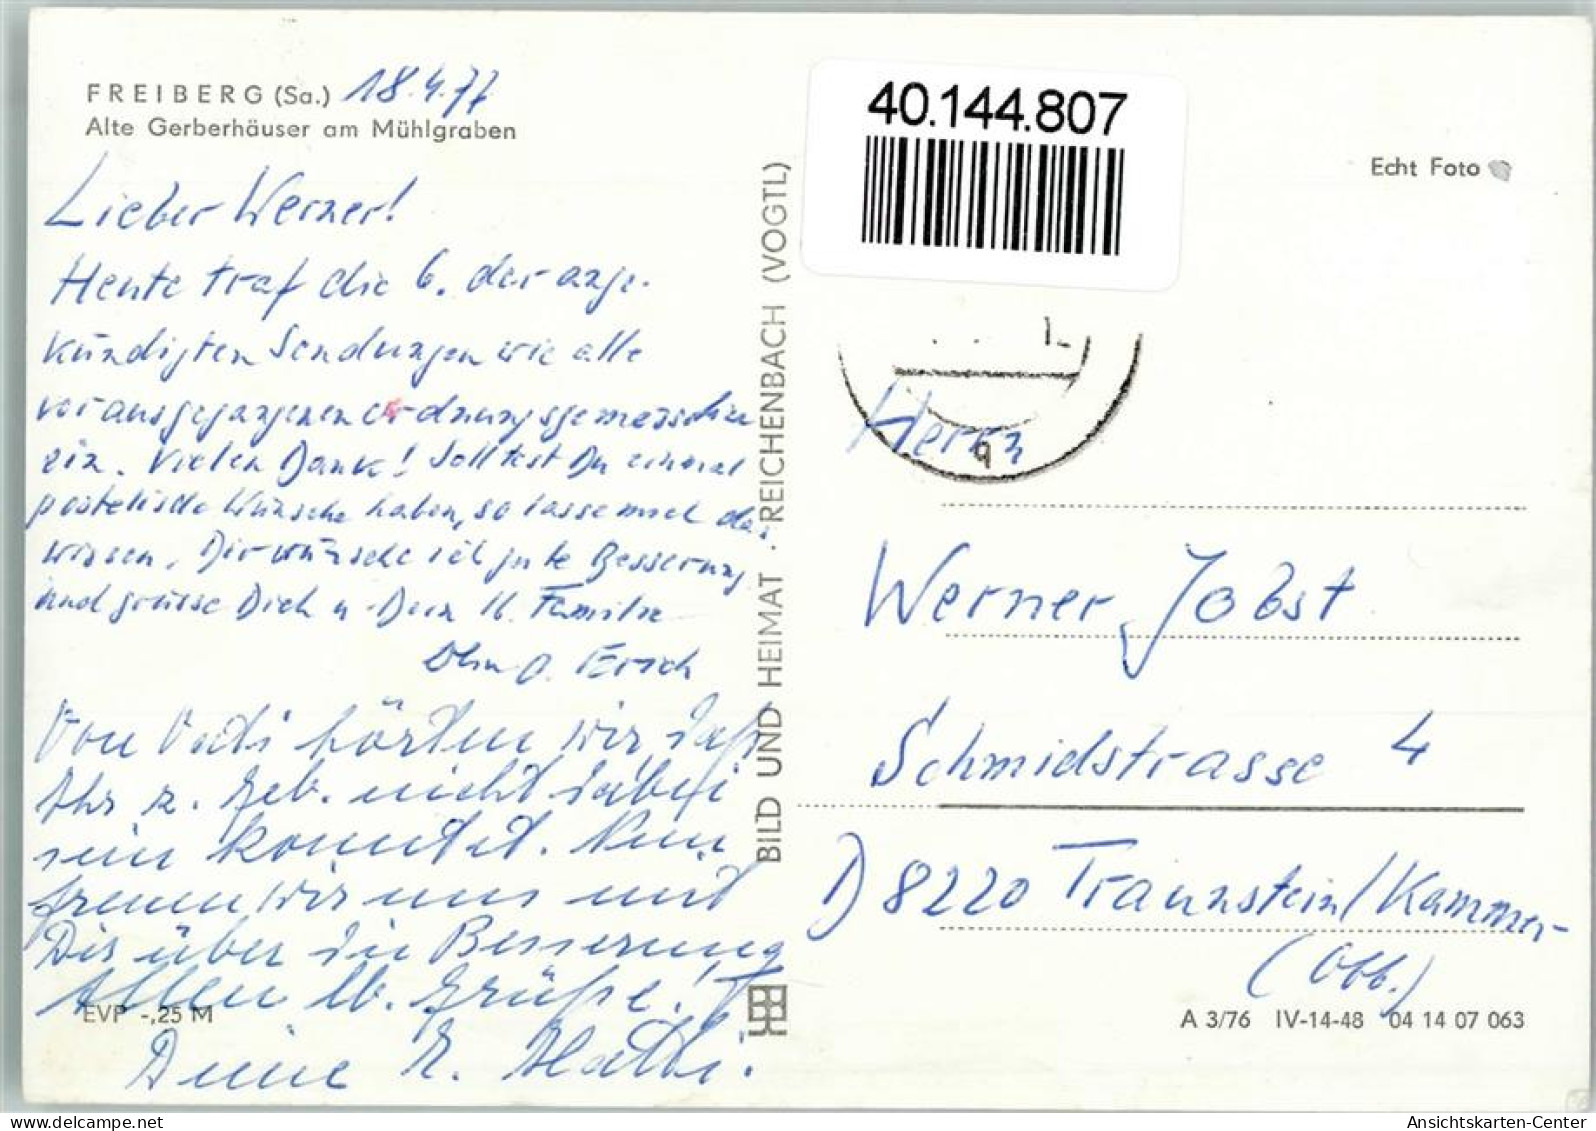 FREIBERG (Sa.) 18.4.77
Alte Gerberhäuser am Mühlgraben
Lieber Werner!
Heute traf die 6. der ange-
kündigten Sendungen wie alle
vorausgegangenen ordnungsgemäss
ein. Vielen Dank! Solltest Du einmal
postalische Wünsche haben, so lasse mich das
wissen. Dir wünsche ich gute Besserung
und grüsse Dich u. Dein lb. Familie
Dein O. Erich
Von Vati hörten wir, daß
Ihr z. Geb. nicht dabei
sein konntet. Nun
freuen wir uns mit
Dir über die Besserung
Allen lb. Grüße!
Deine
EVP -,25 M
BILD UND HEIMAT · REICHENBACH (VOGTL)
40.144.807
Echt Foto
Herrn
Werner Jobst
Schmidstrasse 4
D 8220 Traunstein/Kammer-
(Obb.)
A 3/76 IV-14-48 04 14 07 063
www.delcampe.net
Ansichtskarten-Center